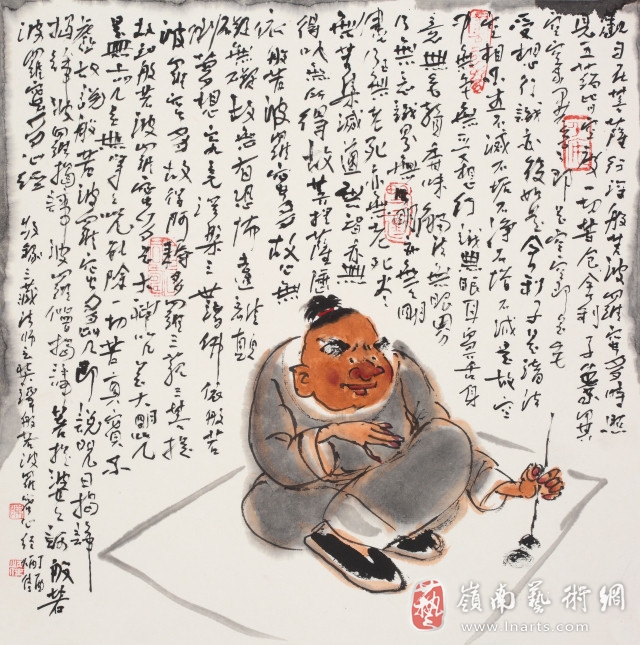 觀自在菩薩行深般若波羅蜜多時照
見五蘊皆空度一切苦厄舍利子色不異
空空不異色色即是空空即是色
受想行識亦復如是舍利子是諸法
空相不生不滅不垢不淨不增不減是故空
中無色無受想行識無眼耳鼻舌身
意無色聲香味觸法無眼界
乃至無意識界無無明亦無無明
盡乃至無老死亦無老死盡
無苦集滅道無智亦無
得以無所得故菩提薩埵
依般若波羅蜜多故心無
罣礙無罣礙故無有恐怖遠離顛
倒夢想究竟涅槃三世諸佛依般若
波羅蜜多故得阿耨多羅三藐三菩提
故知般若波羅蜜多是大神咒是大明咒
是無上咒是無等等咒能除一切苦真實不
虛故說般若波羅蜜多咒即說咒曰揭諦
揭諦波羅揭諦波羅僧揭諦菩提娑婆訶般若
波羅蜜多心經 敬錄三藏法師玄奘譯般若波羅蜜心經
藝 嶺南藝術網
www.lnarts.com